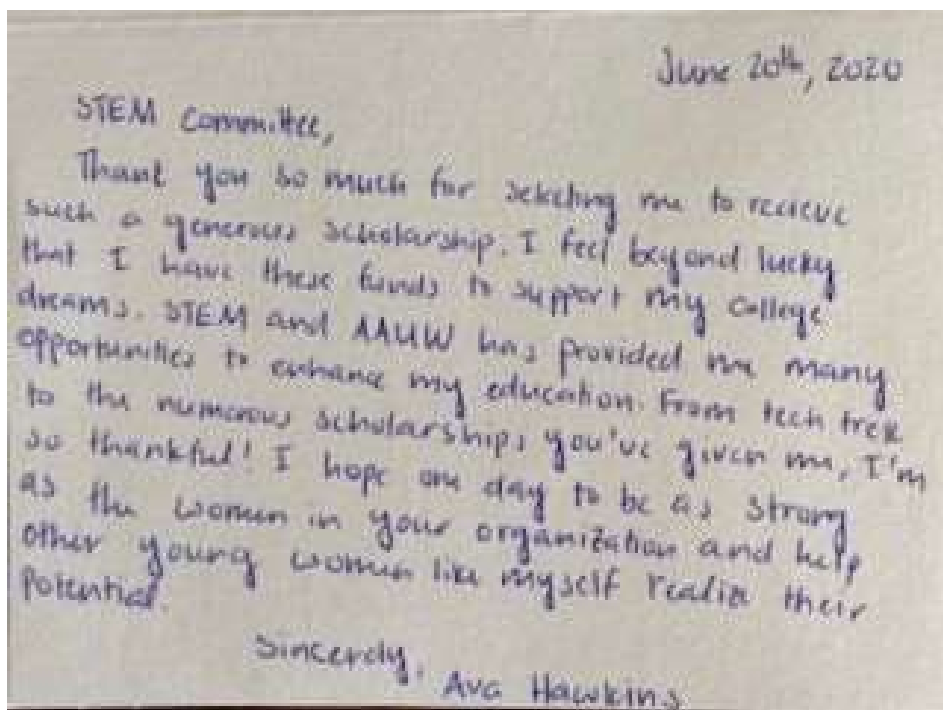 June 20th, 2020
STEM Committee,
Thank you so much for selecting me to recieve
such a generous scholarship. I feel beyond lucky
that I have these funds to support my college
dreams. STEM and AAUW has provided me many
opportunities to enhance my education. From tech trek
to the numerous scholarships you've given me, I'm
so thankful! I hope one day to be as strong
as the women in your organization and help
other young women like myself realize their
potential.
Sincerely,
Ava Hawkins